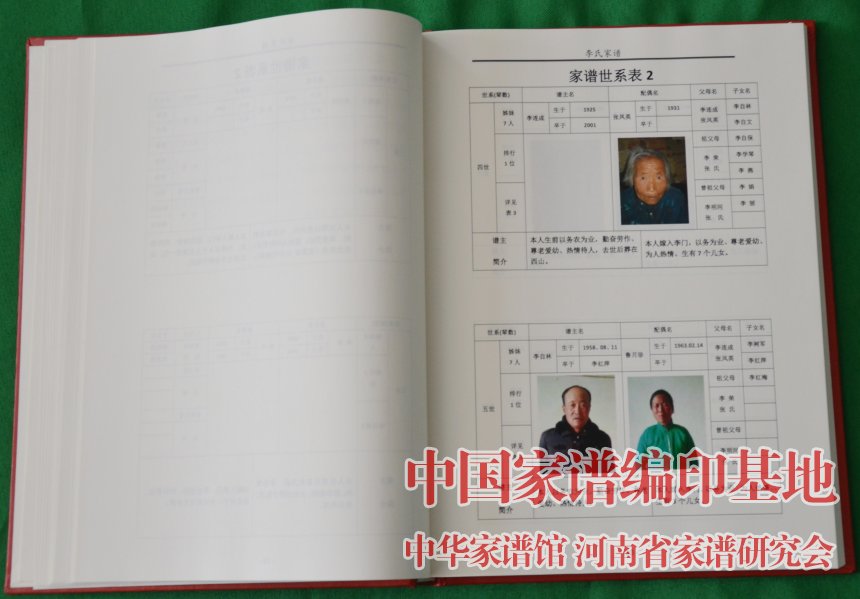 李氏家谱
家谱世系表 2
世系(辈数) 谱主名 配偶名 父母名 子女名
四世 姊妹 7人 李连成 生于 1925 张凤英 生于 1931 李连成 张凤英 李自林
卒于 2001 卒于 李自文
排行 1位 祖父母 李自保
李荣 张氏 李学琴
李燕
详见 表3 曾祖父母 李娟
李明同 张氏 李丽
谱主 简介
本人生前以务农为业，勤奋劳作、
尊老爱幼、热情待人，去世后葬在
西山。
本人嫁入李门，以务为业、尊老爱幼、
为人热情。生有7个儿女。
世系(辈数) 谱主名 配偶名 父母名 子女名
五世 姊妹 7人 李自林 生于 1958.08.11 鲁月珍 生于 1963.02.14 李连成 张凤英 李树军
卒于 李红萍 卒于 李红萍
排行 1位 祖父母 李红梅
李荣 张氏
详见 曾祖父母
李明同
简介
个儿女
中国家谱编印基地
中华家谱馆 河南省家谱研究会